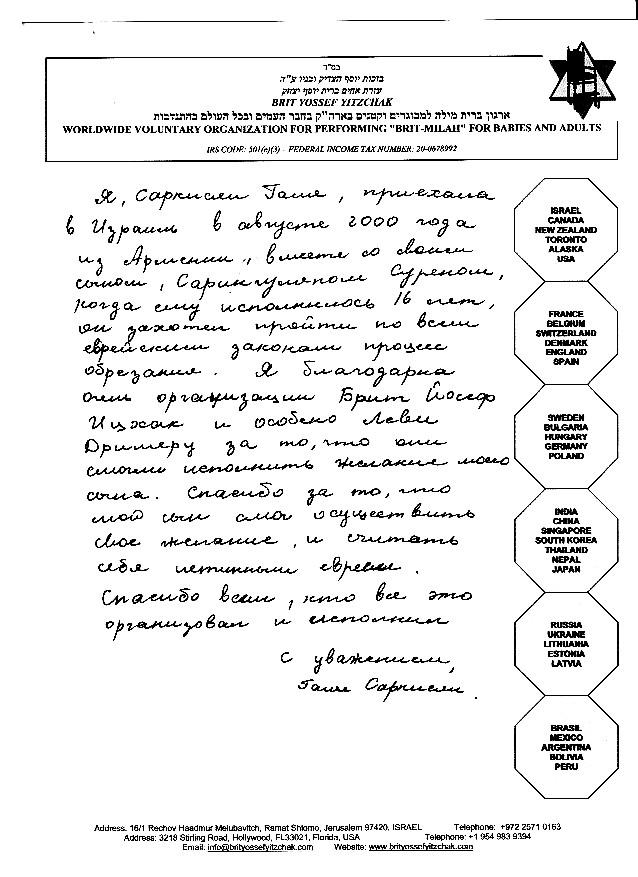 בס"ד
בזכות יוסף הצדיק ובניו ע"ה
עזרת אחים ברית יוסף יצחק
BRIT YOSSEF YITZCHAK
ארגון ברית מילה למבוגרים וקטנים בארה"ק בחבר העמים ובכל העולם בהתנדבות
WORLDWIDE VOLUNTARY ORGANIZATION FOR PERFORMING "BRIT-MILAH" FOR BABIES AND ADULTS
IRS CODE: 501(c)(3) – FEDERAL INCOME TAX NUMBER: 20-0678992
Я, Саркисян Гаяне, приехала
в Израиль в августе 2000 года
из Армении, вместе со своим
сыном, Суреном,
когда ему исполнилось 16 лет,
он захотел пройти по всем
еврейским законам процесс
обрезания. Я благодарна
очень организации Брит Йосеф
Ицхак и особено Леви
Примеру за то, что они
смогли исполнить желание моего
сына. Спасибо за то, что
мой сын смог осуществить
свое желание, и считать
себя истинным евреем.
Спасибо всем, кто все это
организовал и исполнил
с уважением,
Гаяне Саркисян.
ISRAEL
CANADA
NEW ZEALAND
TORONTO
ALASKA
USA
FRANCE
BELGIUM
SWITZERLAND
DENMARK
ENGLAND
SPAIN
SWEDEN
BULGARIA
HUNGARY
GERMANY
POLAND
INDIA
CHINA
SINGAPORE
SOUTH KOREA
THAILAND
NEPAL
JAPAN
RUSSIA
UKRAINE
LITHUANIA
ESTONIA
LATVIA
BRASIL
MEXICO
ARGENTINA
BOLIVIA
PERU
Address: 16/1 Rechov Haadmur Melubavitch, Ramat Shlomo, Jerusalem 97420, ISRAEL Telephone: +972 2571 0163
Address: 3218 Stirling Road, Hollywood, FL33021, Florida, USA Telephone: +1 954 983 9394
Email: info@brityossefyitzchak.com Website: www.brityossefyitzchak.com